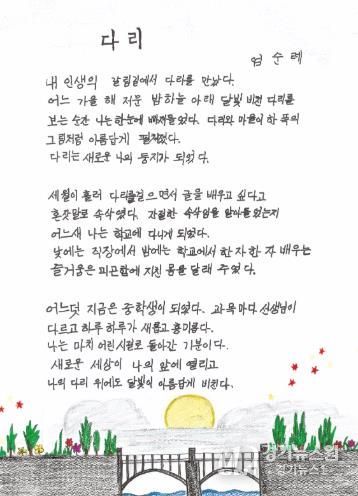 다리
엄순례
내 인생의 갈림길에서 다리를 만났다.
어느 가을 해 저문 밤하늘 아래 달빛 비친 다리를
보는 순간 나는 한눈에 빠져들었다. 다리와 마을이 한 폭의
그림처럼 아름답게 펼쳐졌다.
다리는 새로운 나의 둥지가 되었다.
세월이 흘러 다리를 걸으면서 글을 배우고 싶다고
혼잣말로 속삭였다. 간절한 속삭임을 알아들었는지
어느새 나는 학교에 다니게 되었다.
낮에는 직장에서 밤에는 학교에서 한 자 한 자 배우는
즐거움은 피곤함에 지친 몸을 달래 주었다.
어느덧 지금은 중학생이 되었다. 과목마다 선생님이
다르고 하루 하루가 새롭고 흥미롭다.
나는 마치 어린시절로 돌아간 기분이다.
새로운 세상이 나의 앞에 열리고
나의 다리 위에도 달빛이 아름답게 비친다.
경기뉴스원
경기뉴스원